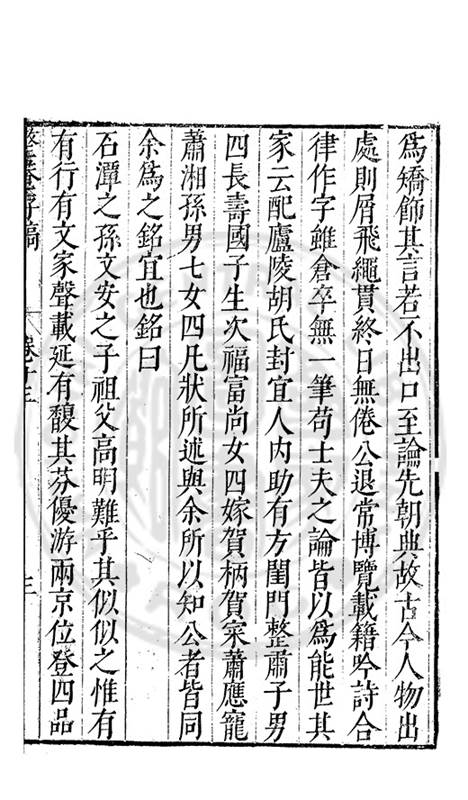 為矯飾其言若不出口至論先朝典故古今人物出
處則屑飛繩貫終日無倦公退常博覽載籍吟詩合
律作字雖倉卒無一筆苟士夫之論皆以為能世其
家云配廬陵胡氏封宜人内助有方閨門整肅子男
四長壽國子生次福富尚女四嫁賀柄賀寀蕭應寵
蕭湘孫男七女四凡狀所述與余所以知公者皆同
余為之銘宜也銘曰
石潭之孫文安之子祖父高明難乎其似似之惟有
有行有文家聲載延有馥其芬優游兩京位登四品
整菴存稿
卷十三
三